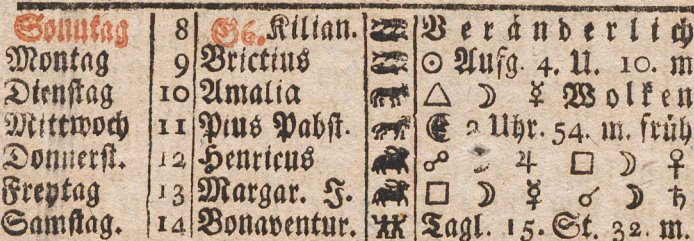 Sonntag 8 G6. Kilian. Veränderlich
Montag 9 Brictius ☉ Aufg. 4. U. 10. m
Dienstag 10 Amalia △ ☽ ☿ Wolken
Mittwoch 11 Pius Pabst. 2 Uhr. 54. m. früh
Donnerst. 12 Henricus ☍ ♃ □ ☽ ♀
Freytag 13 Margar. J. □ ☽ ☿ ☌ ☽ ♄
Samstag. 14 Bonaventur. Tagl. 15. St. 32. m.